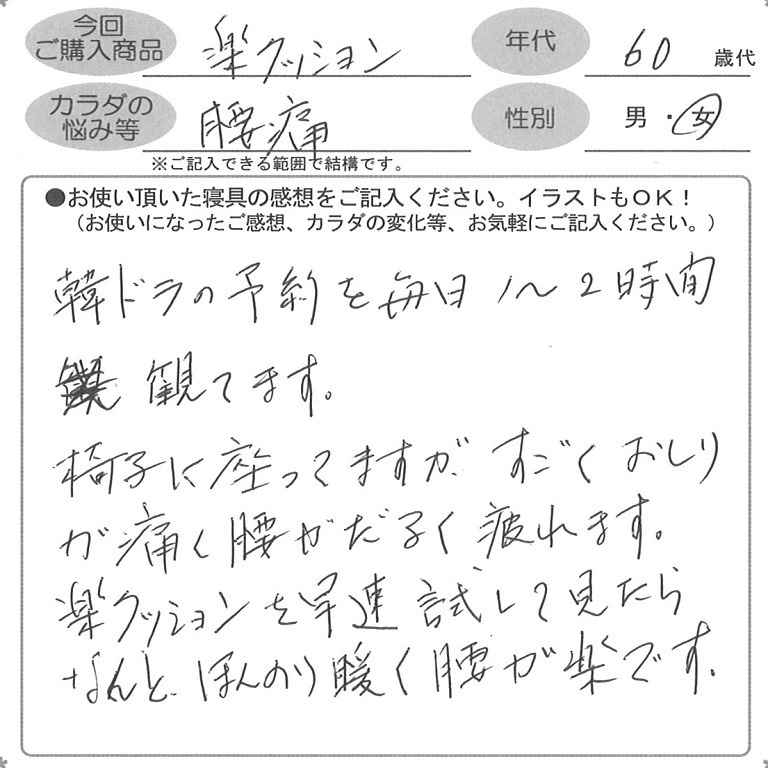 今回
ご購入商品
楽クッション
年代
60 歳代
カラダの
悩み等
腰痛
性別
男・女
※ご記入できる範囲で結構です。
●お使い頂いた寝具の感想をご記入ください。イラストもOK!
(お使いになったご感想、カラダの変化等、お気軽にご記入ください。)
韓ドラの予約を毎日1〜2時間
観てます。
椅子に座ってますが、すごくおしり
が痛く腰がだるく疲れます。
楽クッションを早速試して見たら
なんと、ほんのり暖く腰が楽です。